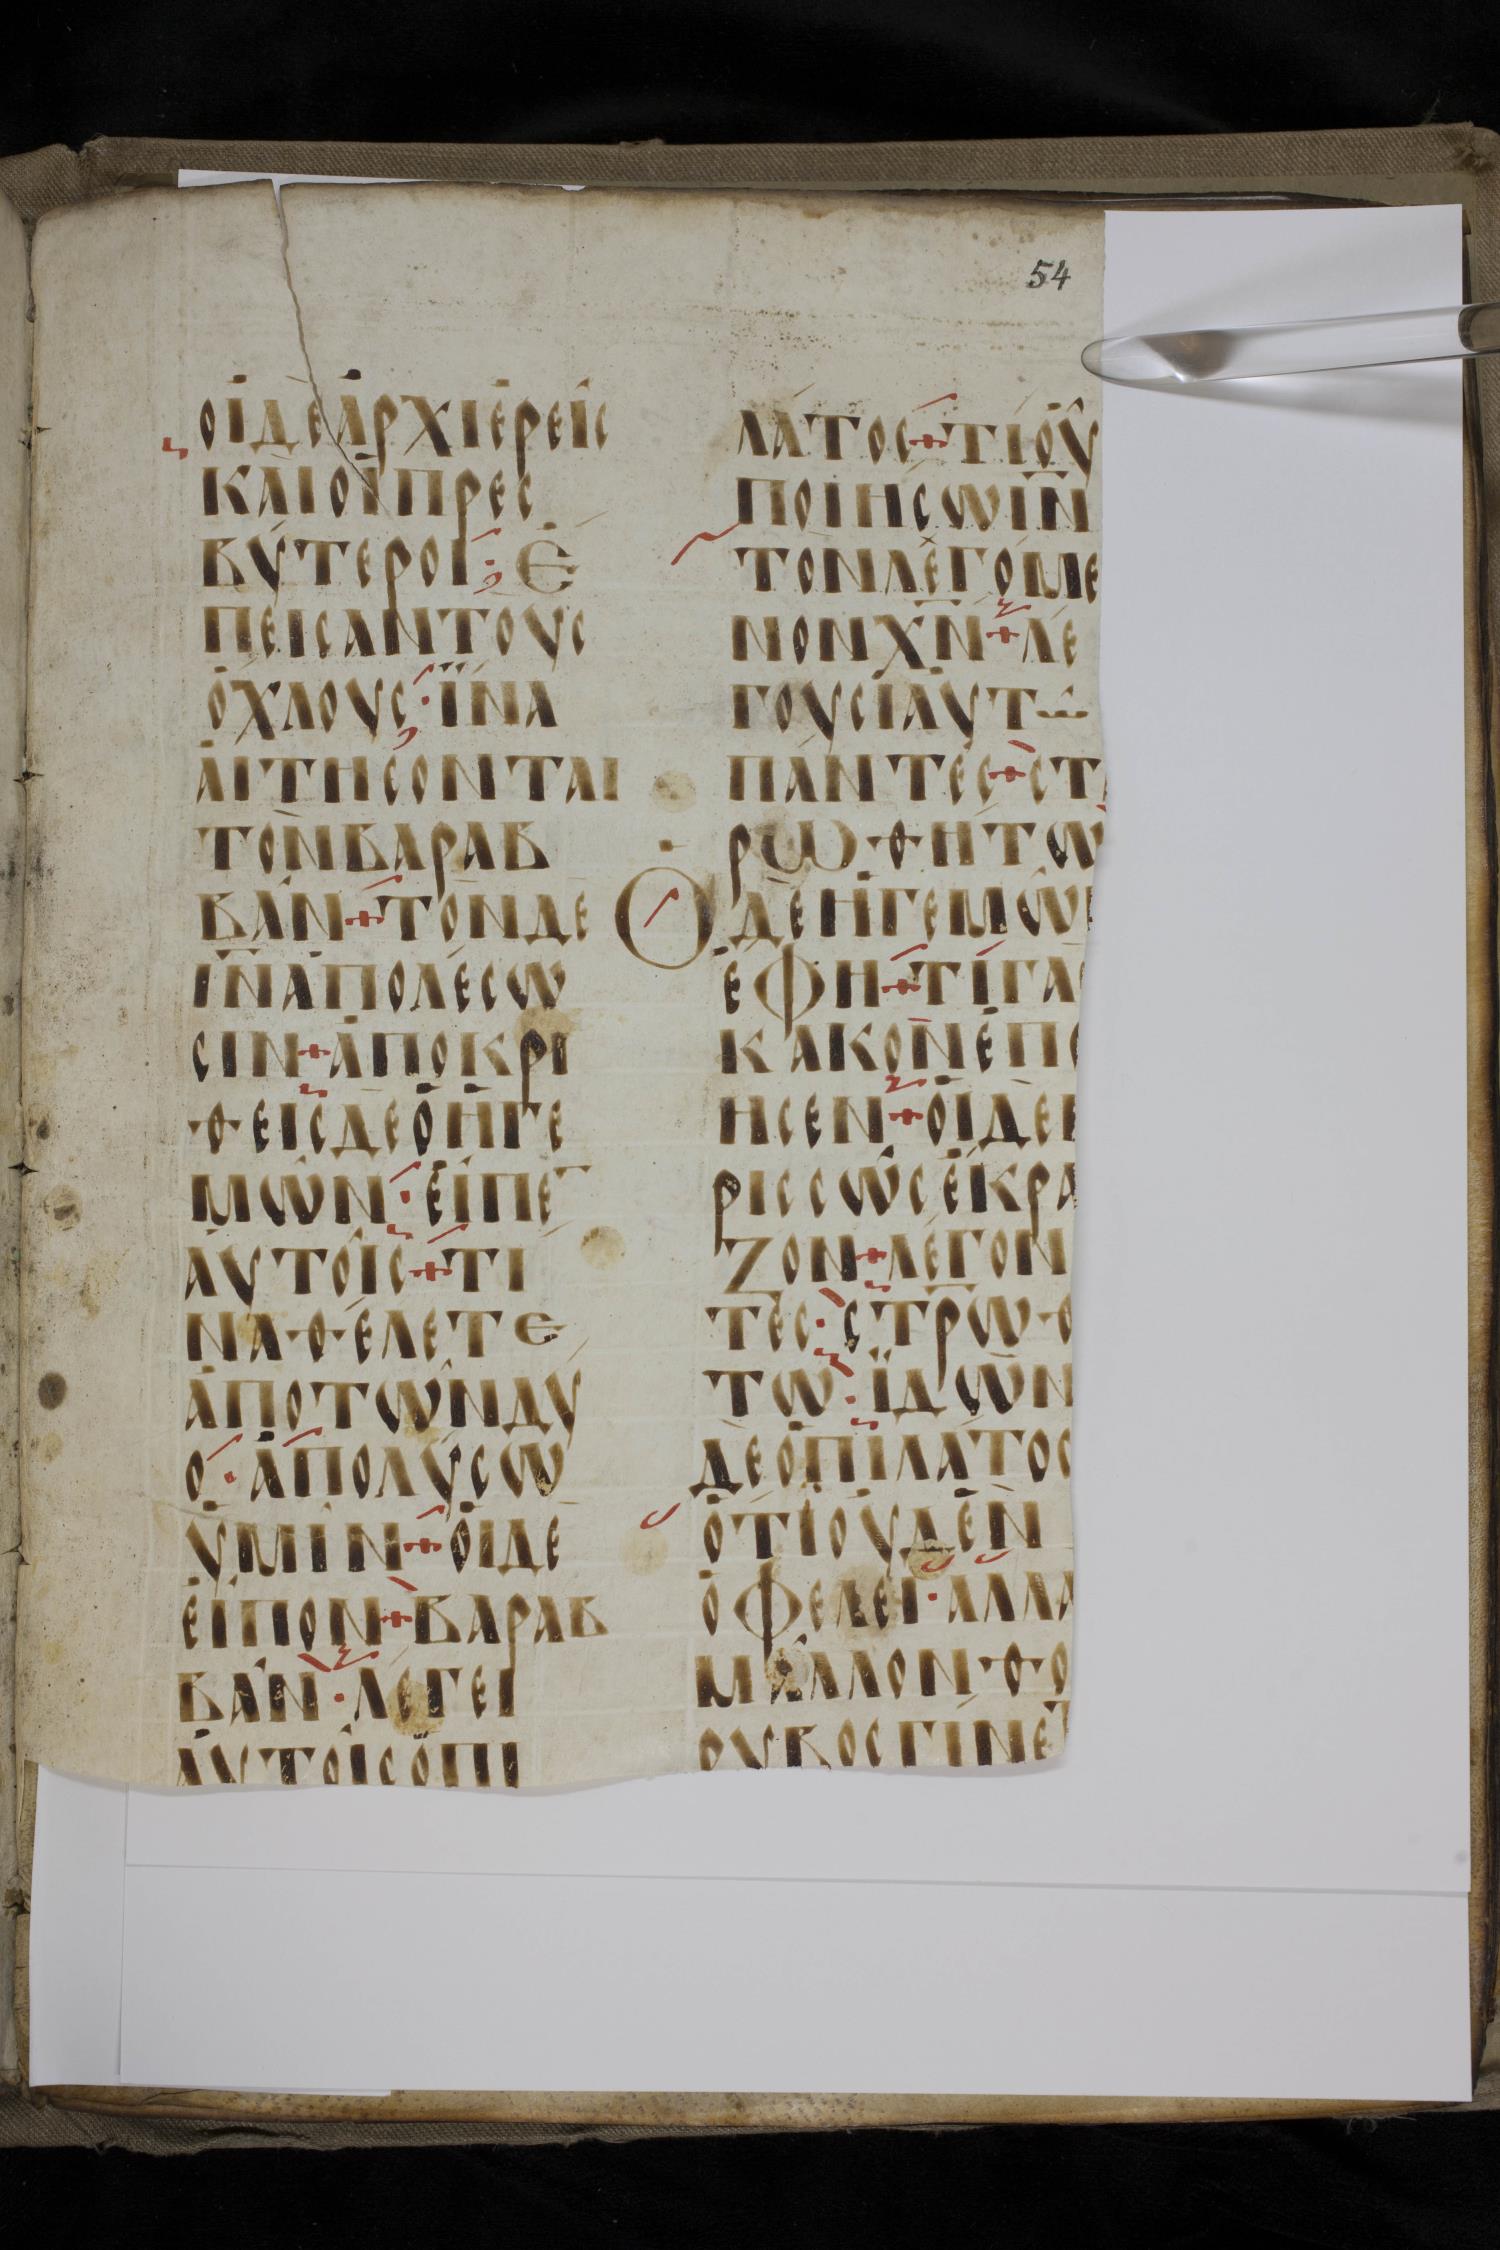 54
ΟΙΔΕΑΡΧΙΕΡΕΙC
ΚΑΙΟΙΠΡΕC
ΒΥΤΕΡΟΙ· Ε
ΠΕΙCΑΝΤΟΥC
ΟΧΛΟΥC·ΪΝΑ
ΑΙΤΗCΟΝΤΑΙ
ΤΟΝΒΑΡΑΒ
ΒΑΝ+ΤΟΝΔΕ
ΙΝ̅ΑΠΟΛΕCΩ
CΙΝ+ΑΠΟΚΡΙ
ΘΕΙCΔΕΟΗΓΕ
ΜΩΝ·ΕΙΠΕΤ
ΑΥΤΟΙC+ΤΙ
ΝΑΘΕΛΕΤΕ
ΑΠΟΤΩΝΔΥ
Ο·ΑΠΟΛΥCΩ
ΥΜΙΝ+ΟΙΔΕ
ΕΙΠΟΝ+ΒΑΡΑΒ
ΒΑΝ·ΛΕΓΕΙ
ΑΥΤΟΙCΟΠΙ
ΛΑΤΟC+ΤΙΟΥ
ΠΟΙΗCΩΙΝ̅
ΤΟΝΛΕΓΟΜΕ
ΝΟΝΧΝ̅+ΛΕ
ΓΟΥCΙΑΥΤΩ
ΠΑΝΤΕC+CΤ
ΡΩΘΗΤΩ
ΟΔΕΗΓΕΜΩΝ
ΕΦΗ+ΤΙΓΑ
ΚΑΚΟΝΕΠΟ
ΗCΕΝ+ΟΙΔΕ
ΡΙCCΩCΕΚΡΑ
ΖΟΝ+ΛΕΓΟΝ
ΤΕC·CΤΡ̅ΩΘ
ΤΩ·ΪΔΩΝ
ΔΕΟΠΙΛΑΤΟC
ΟΤΙΟΥΔΕΝ
ΟΦΕΛΕΙ·ΑΛΛΑ
ΜΑΛΛΟΝΘΟ
ΡΥΒΟCΓΙΝΕΤ